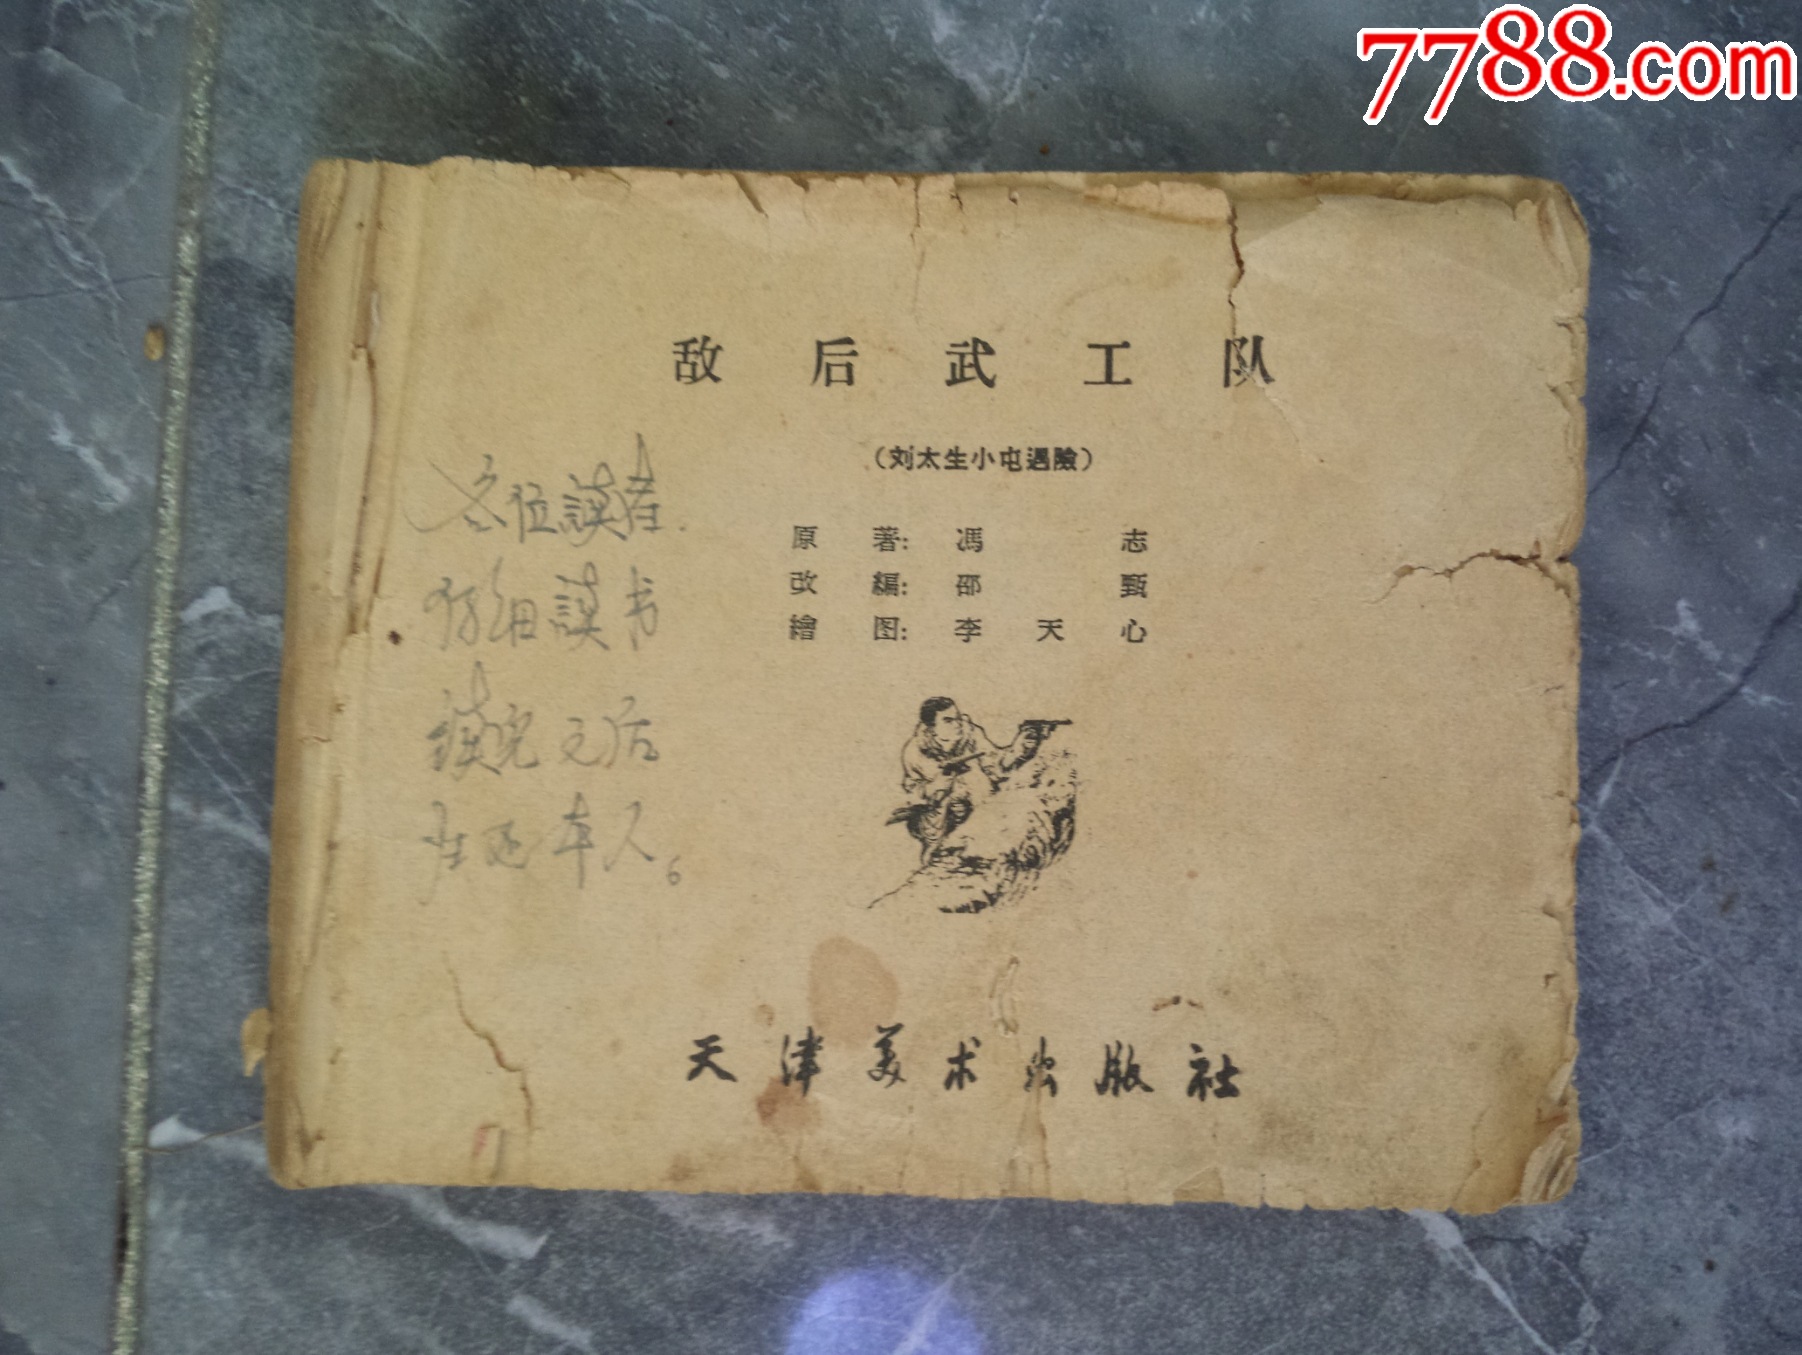 7788.com
敌后武工队
（刘太生小屯遇險）
原著：馮志
改編：邵甄
繪图：李天心
各位讀者.
仔細讀书
讀完之后
归还本人。
天津美术出版社